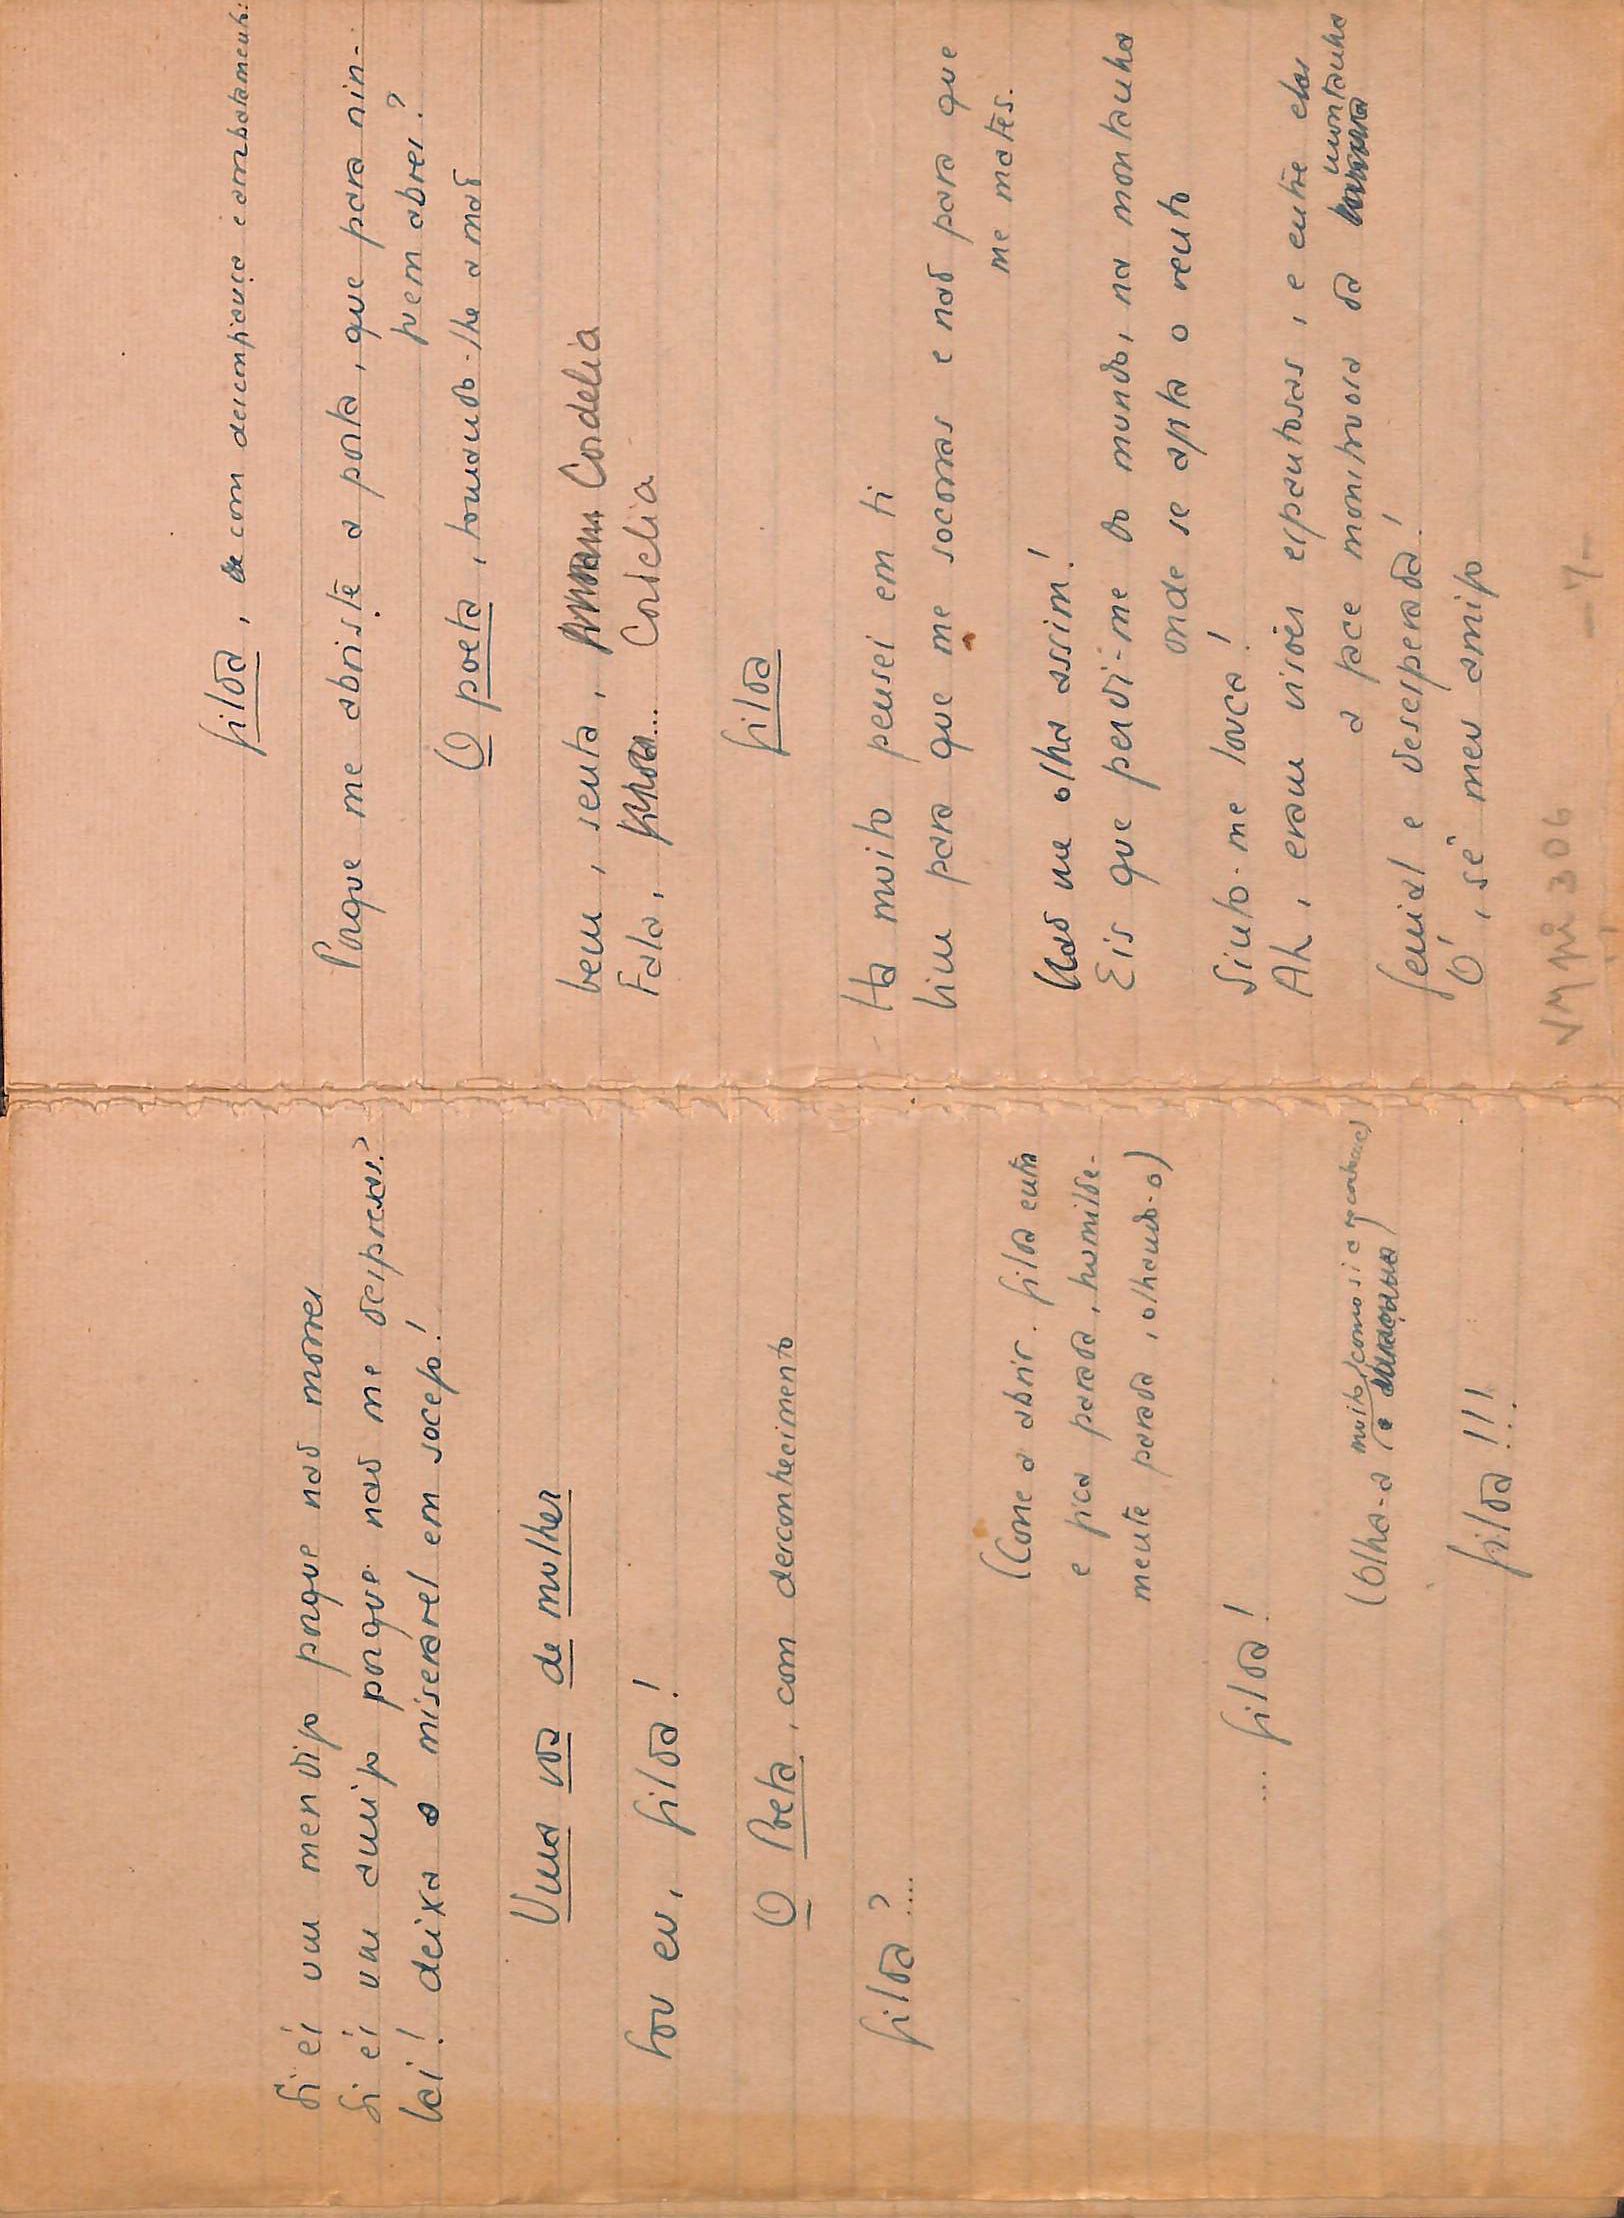 Si és um mendigo porque não morres
Si és um amigo porque não me desprezas?
Vai! deixa o miserável em socego!
Uma voz de mulher
Sou eu, Gilda!
O Poeta, com desconhecimento
Gilda?....
(Corre a abrir. Gilda entra
e fica parada, humilde-
mente parada, olhando-o)
... Gilda!
(Olha-a muito, como si a
Gilda!!!
Gilda, com desconfiança e arrebatamento:
Porque me abriste a porta, que para nin-
guem abres?
O poeta, tomando-lhe a mão
Vem, senta, Cordelia
Fala, ... Cordelia
Gilda
Ha muito pensei em ti
Vim para que me socorras e não para que
me mates.
Não me olha assim!
Eis que perdi-me do mundo, na montanha
onde se agita o vento
Sinto-me louca!
Ah, eram visões espantosas, e entre elas
a face monstruosa da montanha
Genial e desesperada!
Ó, sê meu amigo
VM pi 306